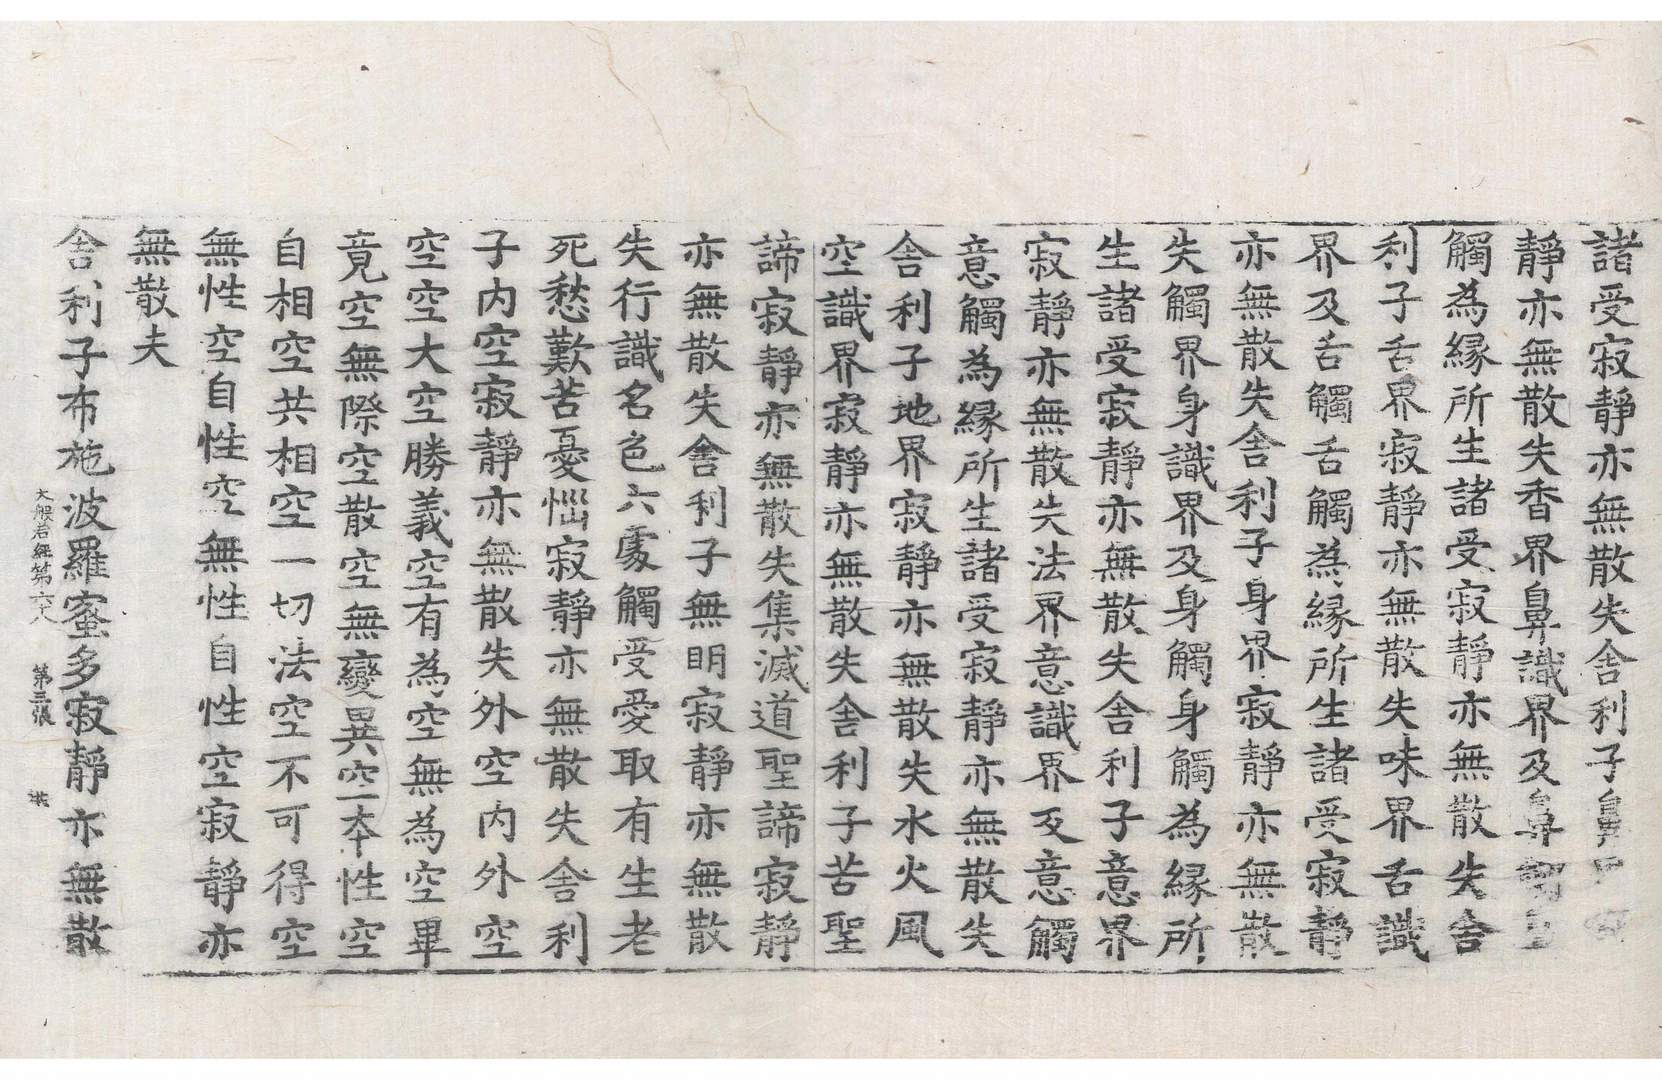 諸受寂靜亦無散失舍利子鼻
靜亦無散失香界鼻識界及鼻觸
觸為緣所生諸受寂靜亦無散失舍
利子舌界寂靜亦無散失味界舌識
界及舌觸舌觸為緣所生諸受寂靜
亦無散失舍利子身界寂靜亦無散
失觸界身識界及身觸身觸為緣所
生諸受寂靜亦無散失舍利子意界
寂靜亦無散失法界意識界及意觸
意觸為緣所生諸受寂靜亦無散失
舍利子地界寂靜亦無散失水火風
空識界寂靜亦無散失舍利子苦聖
諦寂靜亦無散失集滅道聖諦寂靜
亦無散失舍利子無明寂靜亦無散
失行識名色六處觸受愛取有生老
死愁歎苦憂惱寂靜亦無散失舍利
子內空寂靜亦無散失外空內外空
空空大空勝義空有為空無為空畢
竟空無際空散空無變異空本性空
自相空共相空一切法空不可得空
無性空自性空無性自性空寂靜亦
無散失
舍利子布施波羅蜜多寂靜亦無散
大般若經第六八 第三張